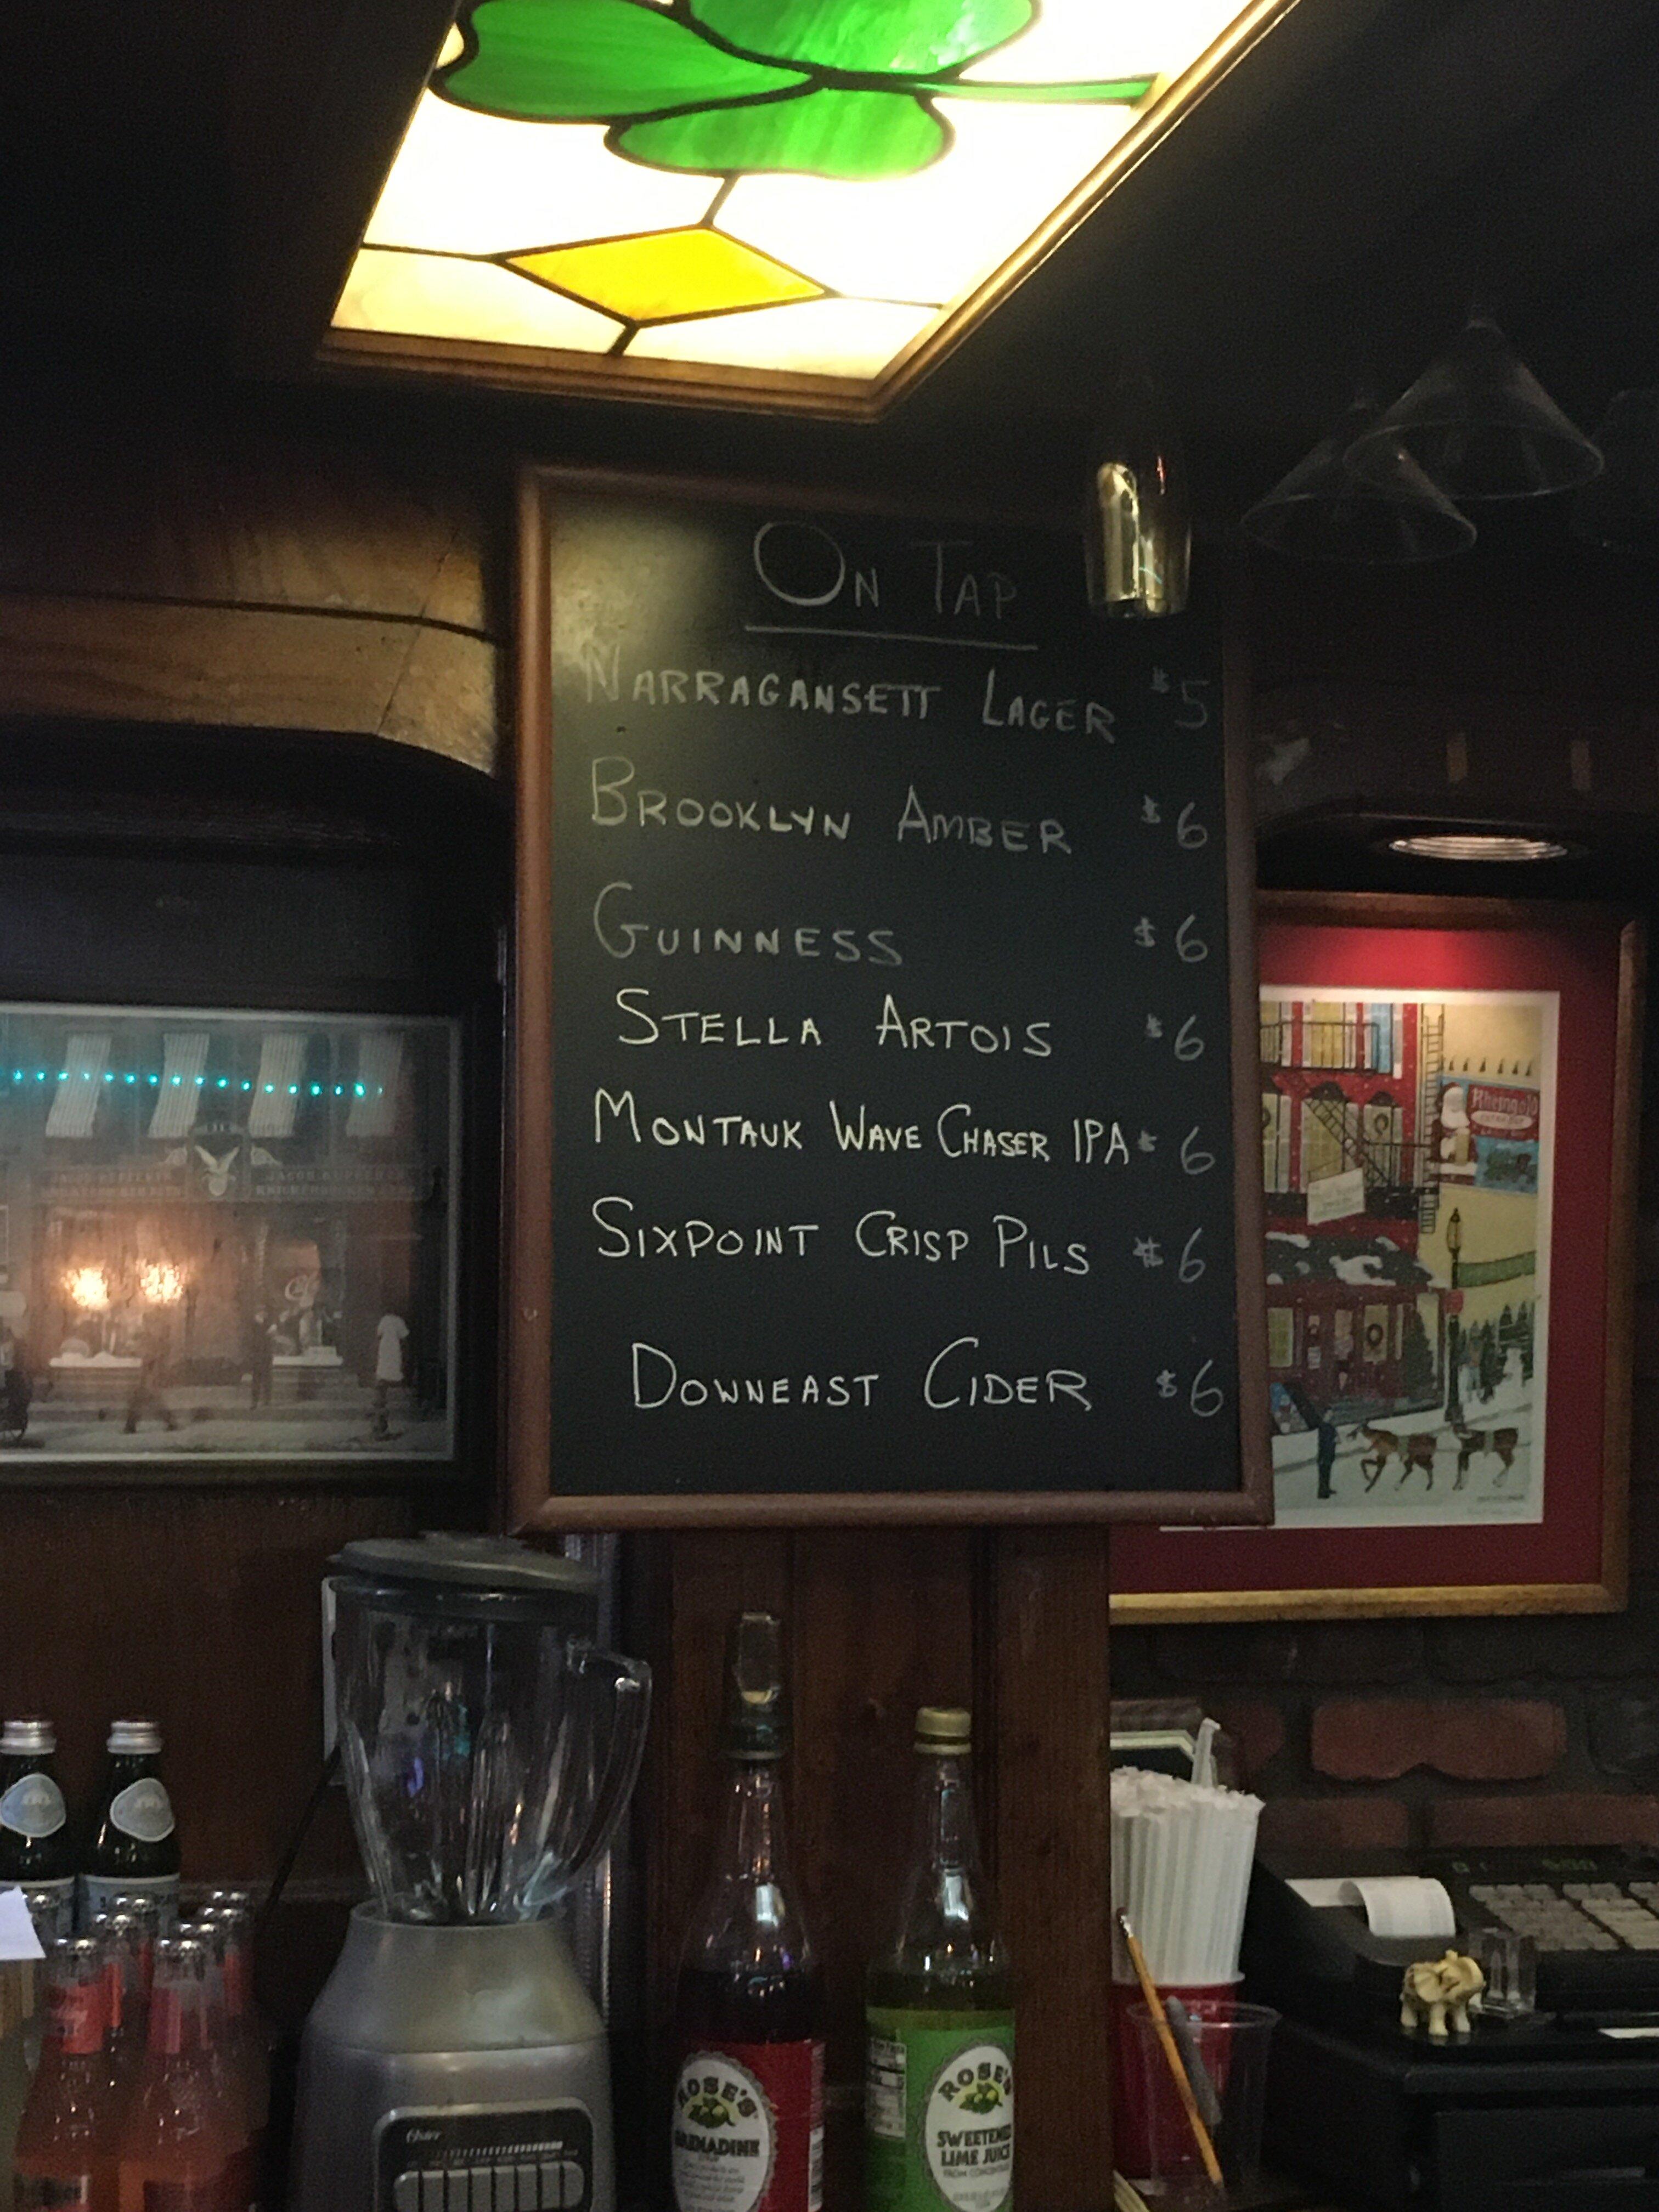 On Tap
Narragansett Lager $5
Brooklyn Amber $6
Guinness $6
Stella Artois $6
Montauk Wave Chaser IPA $6
Sixpoint Crisp Pils $6
Downeast Cider $6
Rheingold
Oster
ROSE'S
GRENADINE
ROSE'S
SWEETENED
LIME JUICE
FROM CONCENTRATE